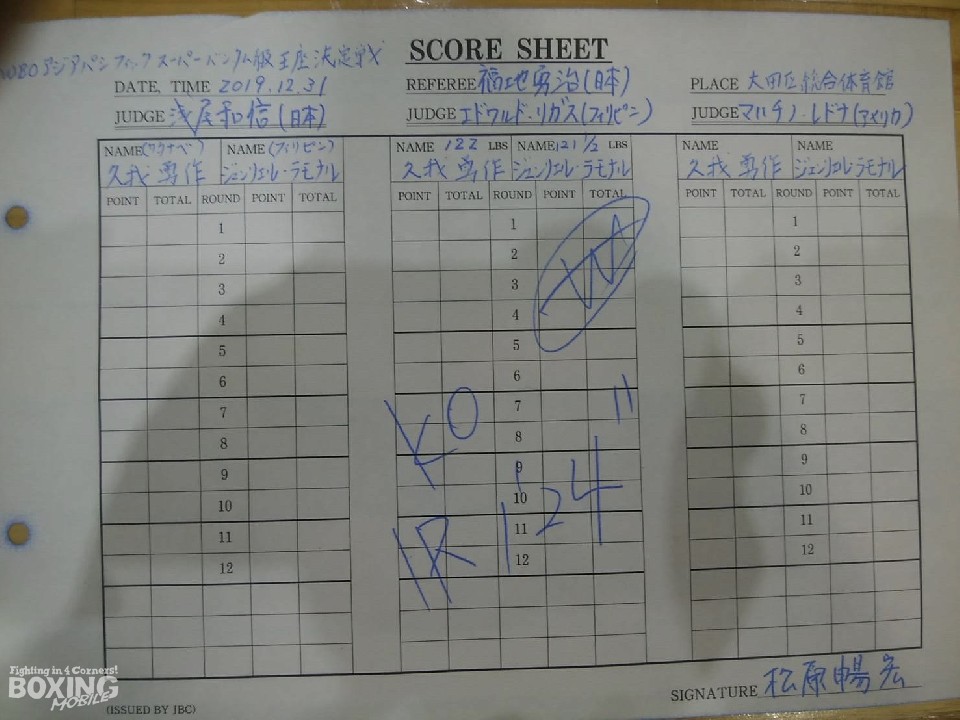 WBOアジアパシフィックスーパーバンタム級王座決定戦
SCORE SHEET
DATE, TIME 2019.12.31
REFEREE 福地勇治(日本)
PLACE 大田区総合体育館
JUDGE 浅尾和信(日本)
JUDGE エドワルド・リガス(フィリピン)
JUDGE マルチノ・レドナ(アメリカ)
NAME(ワタナベ) NAME(フィリピン)
久我勇作 ジェンリエル・ラモナル
NAME 122 LBS NAME 121 1/2 LBS
久我勇作 ジェンリエル・ラモナル
NAME NAME
久我勇作 ジェンリエル・ラモナル
POINT TOTAL ROUND POINT TOTAL
POINT TOTAL ROUND POINT TOTAL
POINT TOTAL ROUND POINT TOTAL
1 1 1
2 2 2
3 3 3
4 4 4
5 5 5
6 6 6
7 7 7
8 8 8
9 9 9
10 10 10
11 11 11
12 12 12
W
KO
1R 1'24"
SIGNATURE 松原暢宏
(ISSUED BY JBC)
Fighting in 4 Corners!
BOXING
MOBILE